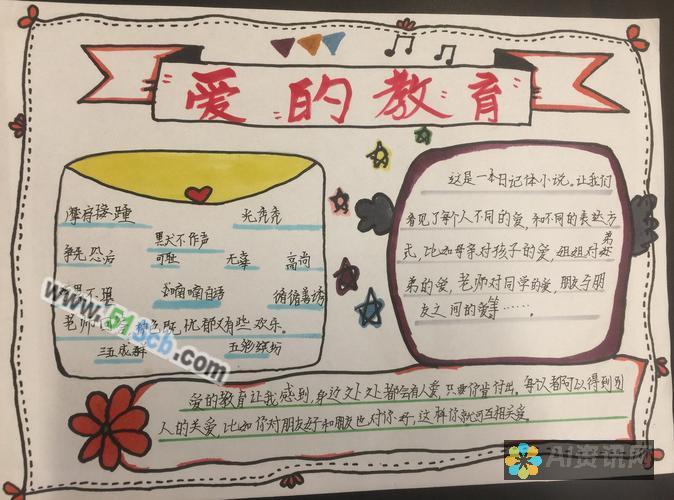 爱的教育
摩肩接踵 光秃秃
争先恐后 默不作声
可耻 无辜 高尚
喃喃自语 循循善诱
老师 既忧郁又有些欢乐。
三五成群 五彩缤纷
这是一本日记体小说。让我们
看见了每个人不同的爱,和不同的表达方
式,比如母亲对孩子的爱,姐姐对弟
弟的爱,老师对同学的爱,朋友与朋
友之间的爱等……。
爱的教育让我感到,身边处处都会有人爱,只要你肯付出。每次都可以得到别
人的关爱,比如你对朋友好和朋友也对你好,这样你就可互相关爱。
www.51scb.com
AI资讯网